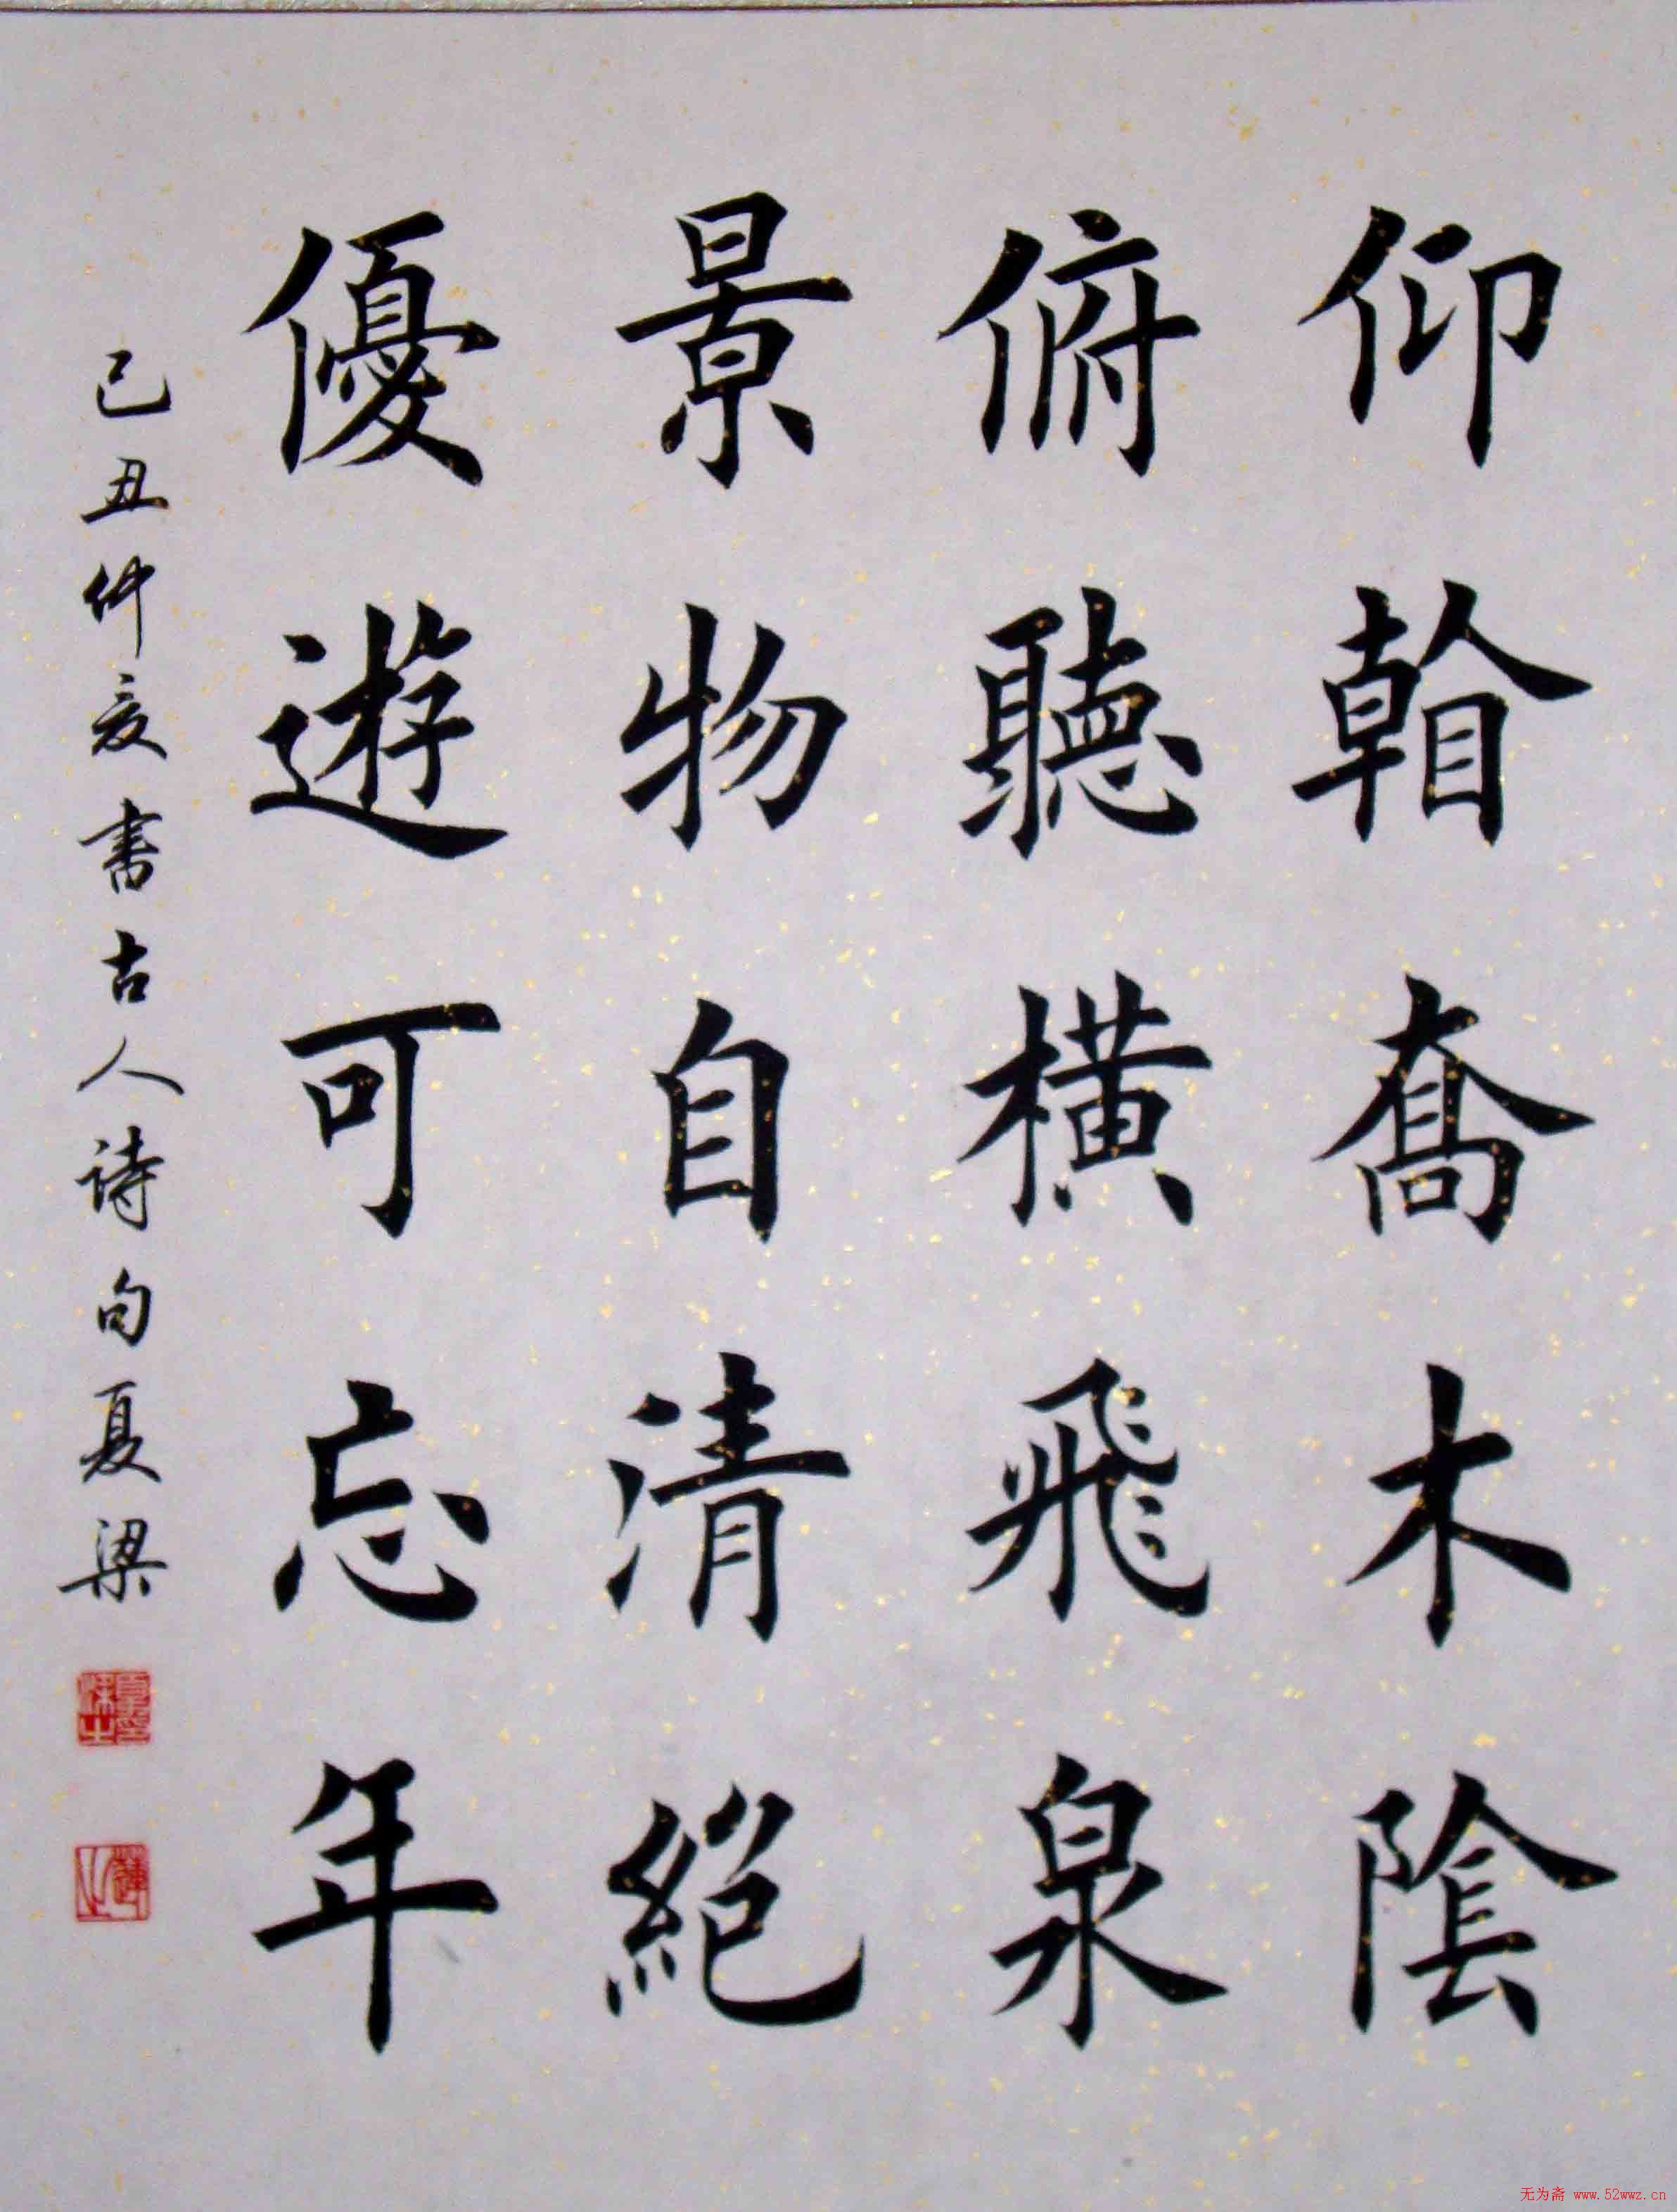 仰喬木陰
俯聽橫飛泉
景物自清絕
優遊可忘年
己丑仲夏書古人詩句夏梁
无为斋 www.52wwz.cn